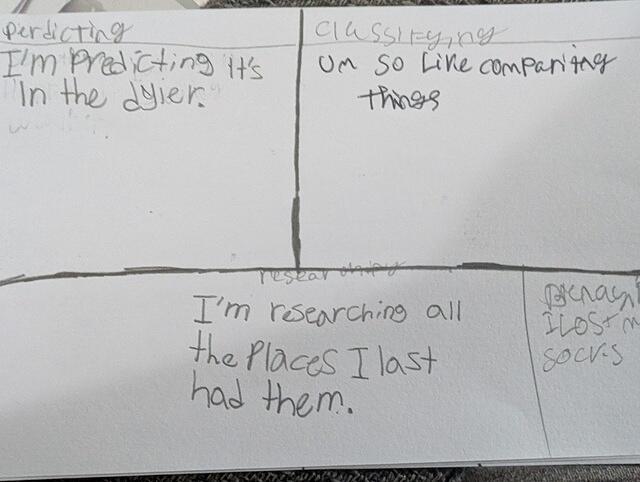 Perdicting
I'm Predicting it's
in the dyier.
Classifying
Um so Like comparitng
things
I'm researching all
the Places I last
had them.
I LOSt m
socks